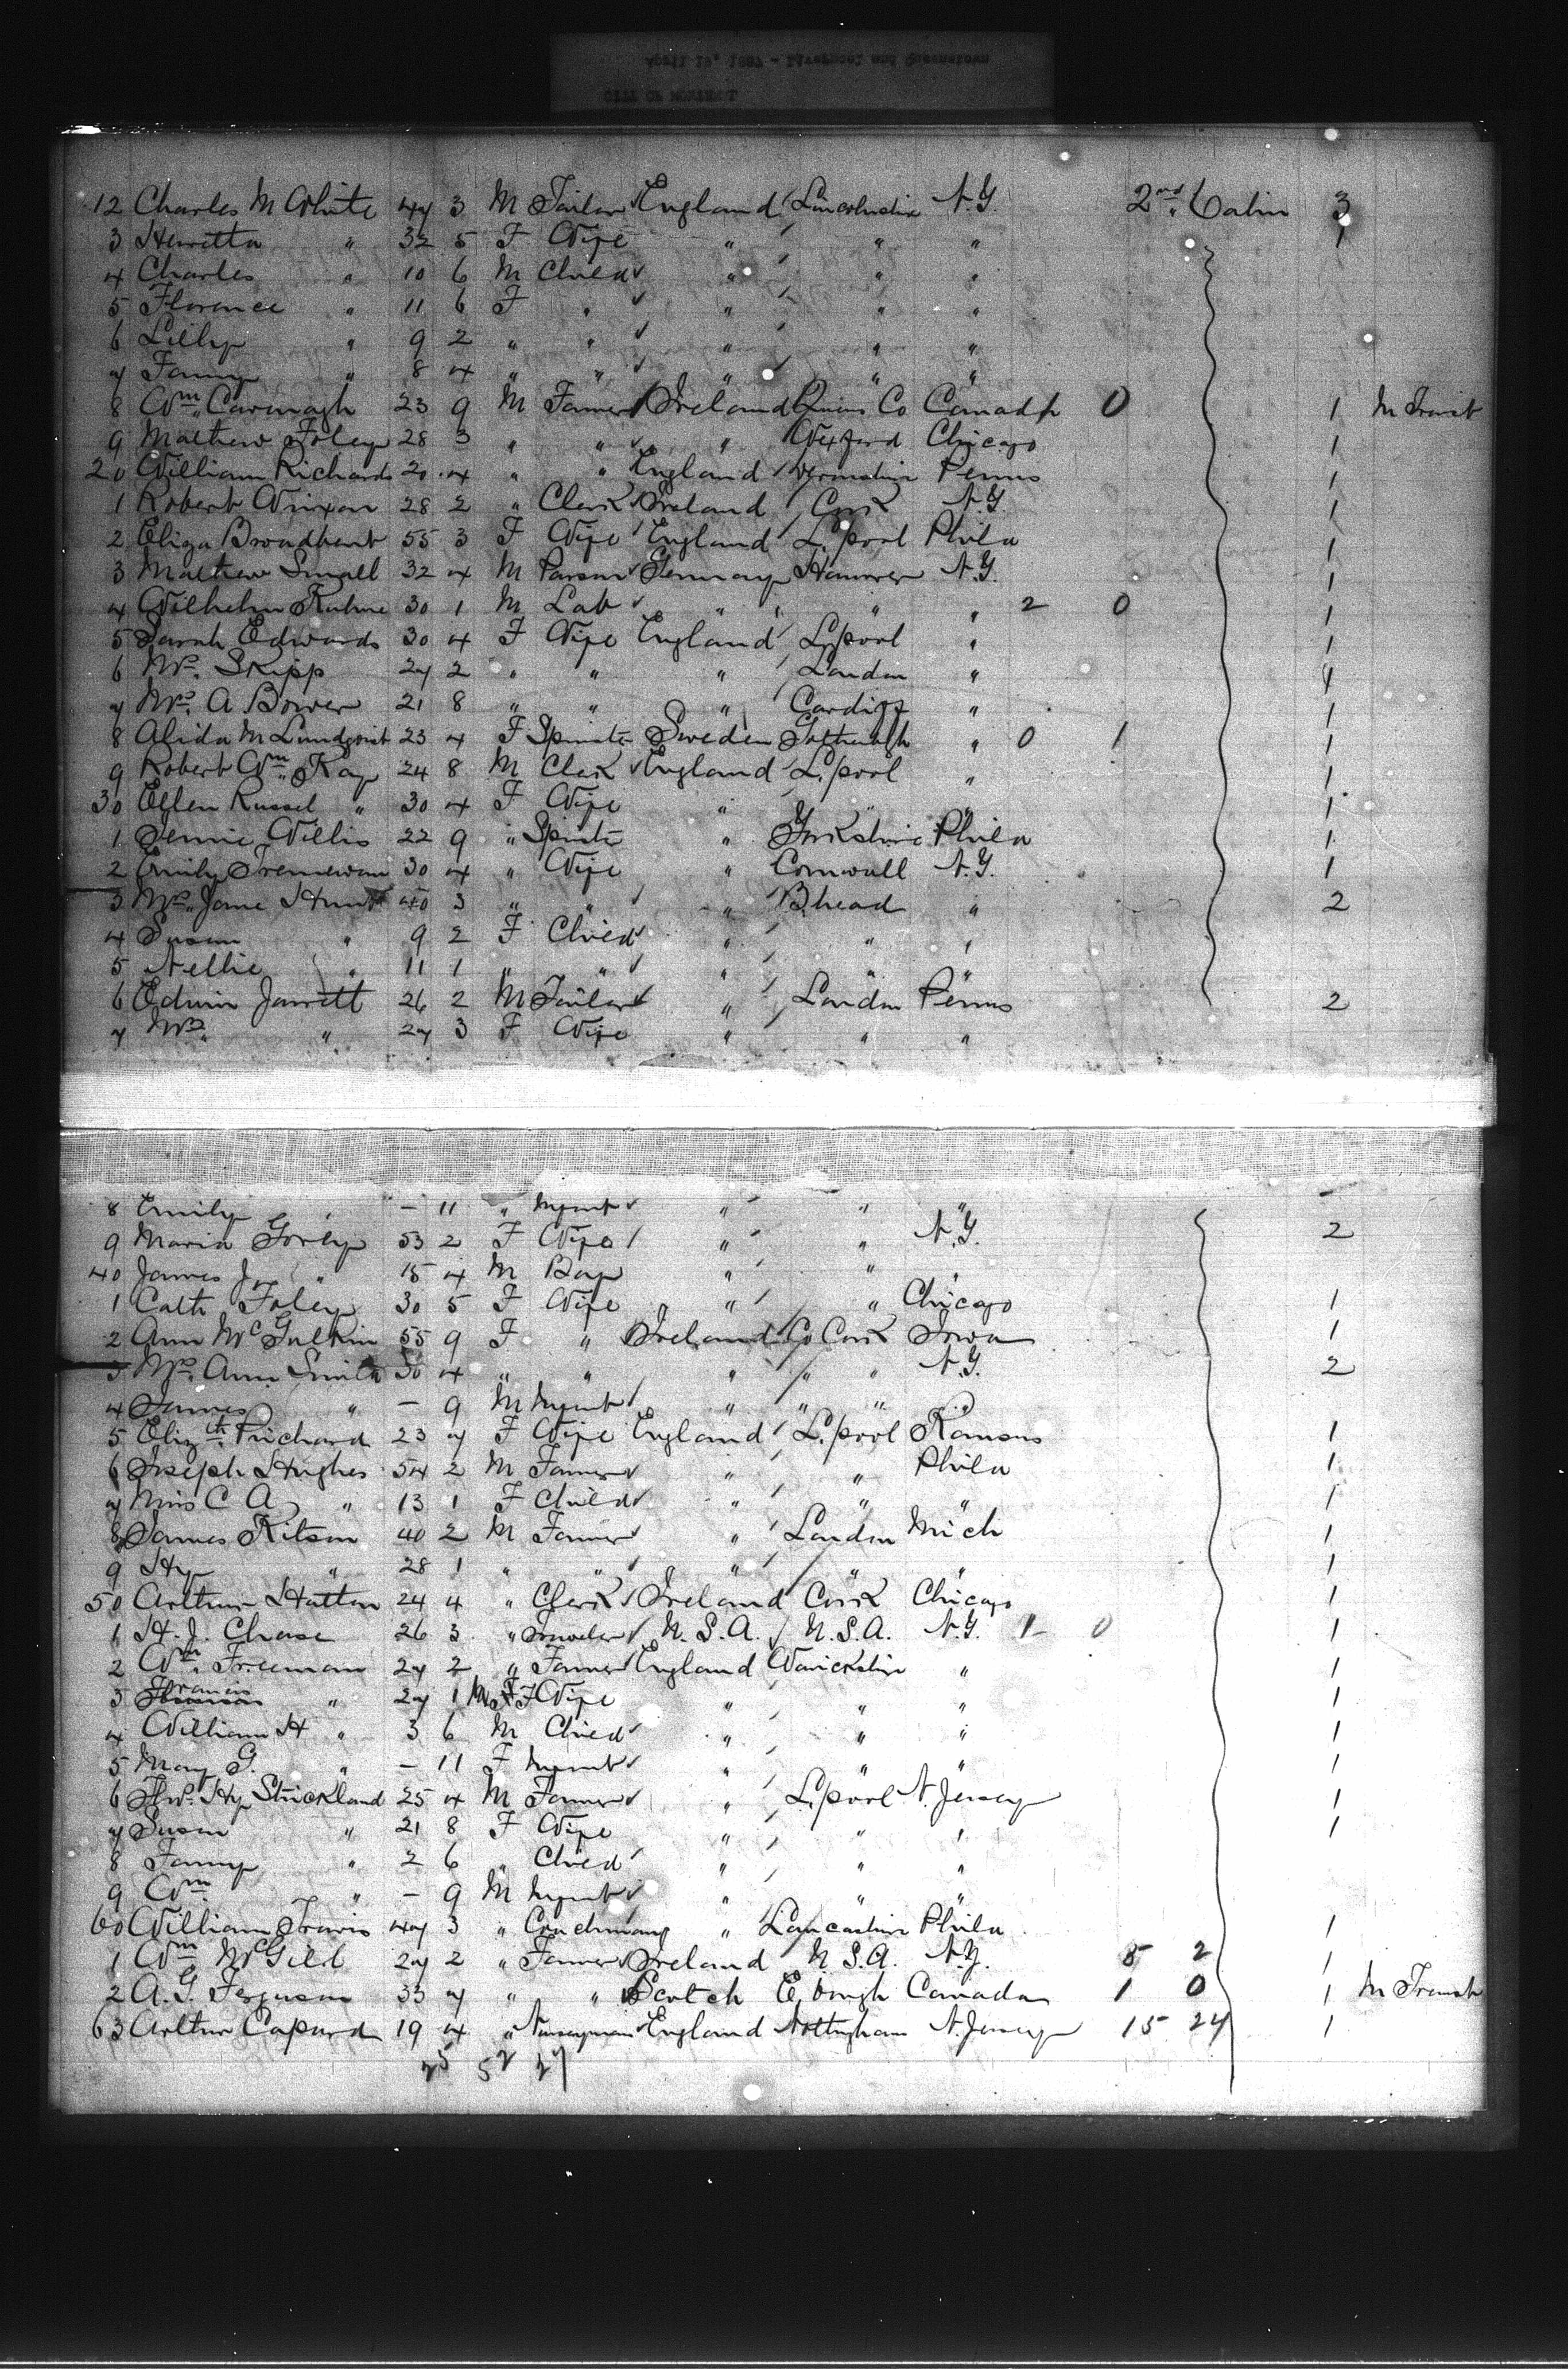 April 19, 1887 - Liverpool and Queenstown
CITY OF MONTREAL
12 Charles M White 47 3 M Tailor England Lincolnshire N.Y. 2nd Cabin 3
3 Henretta " 32 5 F Wife " " " 1
4 Charles " 10 6 M Child " " "
5 Florence " 11 6 F " " " "
6 Lilly " 9 2 " " " " "
7 Fanny " 8 4 " " " " "
8 Wm Cavanagh 23 9 M Farmer Ireland Queens Co Canada 0 1 In Transit
9 Mathew Foley 28 3 " " " Wexford Chicago 1
20 William Richards 20 4 " " England Penns 1
1 Robert Winxon 28 2 " Clerk Ireland Cork N.Y. 1
2 Eliza Broadbent 55 3 F Wife England L.pool Phila 1
3 Mathew Small 32 4 M Parson Germany Hanover N.Y. 1
4 Wilhelm Kuhne 30 1 M Lab " " " 2 0 1
5 Sarah Edwards 30 4 F Wife England L.pool " 1
6 Mrs. Skipp 27 2 " " " London " 1
7 Mrs. A Bower 21 8 " " " Cardiff " 1
8 Alida M Lundqvist 23 4 F Spinster Sweden Gothenbgh " 0 1 1
9 Robert Wm Kay 24 8 M Clerk England L.pool " 1
30 Ellen Russel " 30 4 F Wife " " " 1
1 Jennie Willis 22 9 " Spinster " Yorkshire Phila 1
2 Emily Tremewan 30 4 " Wife " Cornwall N.Y. 1
3 Mrs. Jane Hunt 40 3 " " " B.head " 2
4 Susan " 9 2 F Child " " "
5 Nellie " 11 1 " " " " "
6 Edwin Jarrett 26 2 M Tailor " London Penns 2
7 Mrs. " 27 3 F Wife " " "
8 Emily " - 11 " Infant " " "
9 Maria Gorey 53 2 F Wife " " N.Y. 2
40 James J. " 15 4 M Boy " " "
1 Cath Foley 30 5 F Wife " " Chicago 1
2 Ann McGulkin 55 9 F " Ireland Co Cork Iowa 1
3 Mrs. Ann Smith 30 4 " " " " N.Y. 2
4 James " - 9 M Infant " " "
5 Elizth. Prichard 23 7 F Wife England L.pool Kansas 1
6 Joseph Hughes 54 2 M Farmer " " Phila 1
7 Miss C A " 13 1 F Child " " " 1
8 James Kitson 40 2 M Farmer " London Mich 1
9 Hy " 28 1 " " " " " 1
50 Arthur Hatton 24 4 " Clerk Ireland Cork Chicago 1
1 H. J. Chase 26 3 " Traveler U.S.A. U.S.A. N.Y. 1 0 1
2 Wm. Freeman 27 2 " Farmer England Warickshire " 1
3 Francis " 27 1 M F F Wife " " " 1
4 William H " 3 6 M Child " " " 1
5 May G. " - 11 F Infant " " " 1
6 Hy Strickland 25 4 M Farmer " L.pool N. Jersey 1
7 Susan " 21 8 F Wife " " " 1
8 Fanny " 2 6 " Child " " "
9 Wm " - 9 M Infant " " "
60 William Travis 47 3 " Coachman " Lancashire Phila 1
1 Wm McGill 27 2 " Farmer Ireland U.S.A. N.Y. 8 2 1
2 A. G. Ferguson 33 7 " " Scotch E.burgh Canada 1 0 1 In Transit
63 Arthur Capard 19 4 " England Nottingham N. Jersey 15 24 1
25 52 27